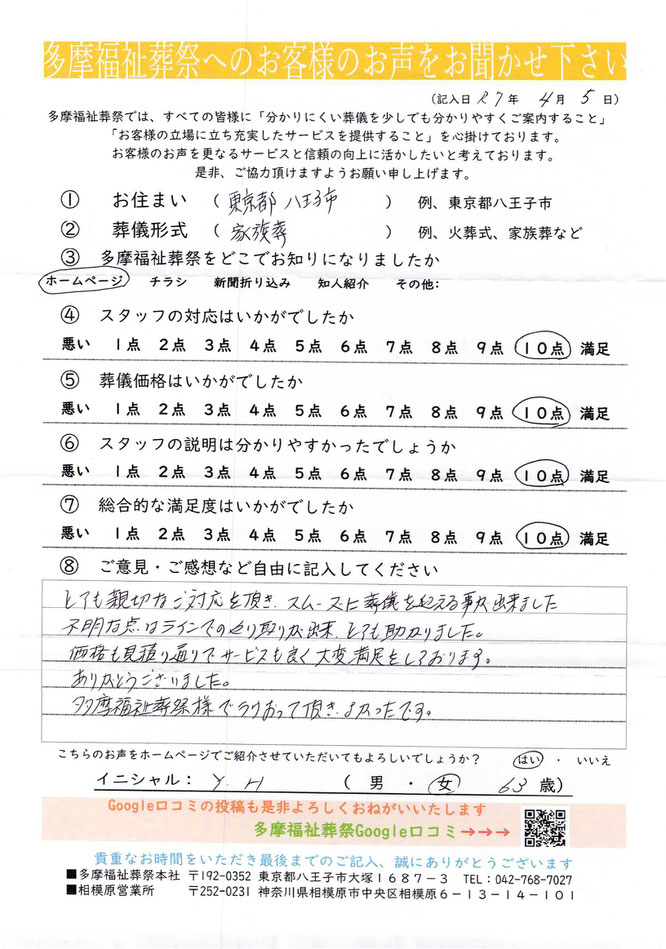 多摩福祉葬祭へのお客様のお声をお聞かせ下さい
(記入日 R7年 4月 5日)
多摩福祉葬祭では、すべての皆様に「分かりにくい葬儀を少しでも分かりやすくご案内すること」
「お客様の立場に立ち充実したサービスを提供すること」を心掛けております。
お客様のお声を更なるサービスと信頼の向上に活かしたいと考えております。
是非、ご協力頂けますようお願い申し上げます。
① お住まい (東京都 八王子市) 例、東京都八王子市
② 葬儀形式 (家族葬) 例、火葬式、家族葬など
③ 多摩福祉葬祭をどこでお知りになりましたか
ホームページ チラシ 新聞折り込み 知人紹介 その他:
④ スタッフの対応はいかがでしたか
悪い 1点 2点 3点 4点 5点 6点 7点 8点 9点 10点 満足
⑤ 葬儀価格はいかがでしたか
悪い 1点 2点 3点 4点 5点 6点 7点 8点 9点 10点 満足
⑥ スタッフの説明は分かりやすかったでしょうか
悪い 1点 2点 3点 4点 5点 6点 7点 8点 9点 10点 満足
⑦ 総合的な満足度はいかがでしたか
悪い 1点 2点 3点 4点 5点 6点 7点 8点 9点 10点 満足
⑧ ご意見・ご感想など自由に記入してください
とても親切なご対応を頂き、スムーズに葬儀を終える事が出来ました
不明な点はラインでのやり取りが出来、とても助かりました。
価格も見積り通りでサービスも良く大変満足をしております。
ありがとうございました。
多摩福祉葬祭様で
頂き、よかったです。
こちらのお声をホームページでご紹介させていただいてもよろしいでしょうか? はい ・ いいえ
イニシャル: Y. H (男 ・ 女 63歳)
Google口コミの投稿も是非よろしくおねがいいたします
多摩福祉葬祭Google口コミ→→→
貴重なお時間をいただき最後までのご記入、誠にありがとうございます
■多摩福祉葬祭本社 〒192-0352 東京都八王子市大塚1687-3 TEL:042-768-7027
■相模原営業所 〒252-0231 神奈川県相模原市中央区相模原6-13-14-101